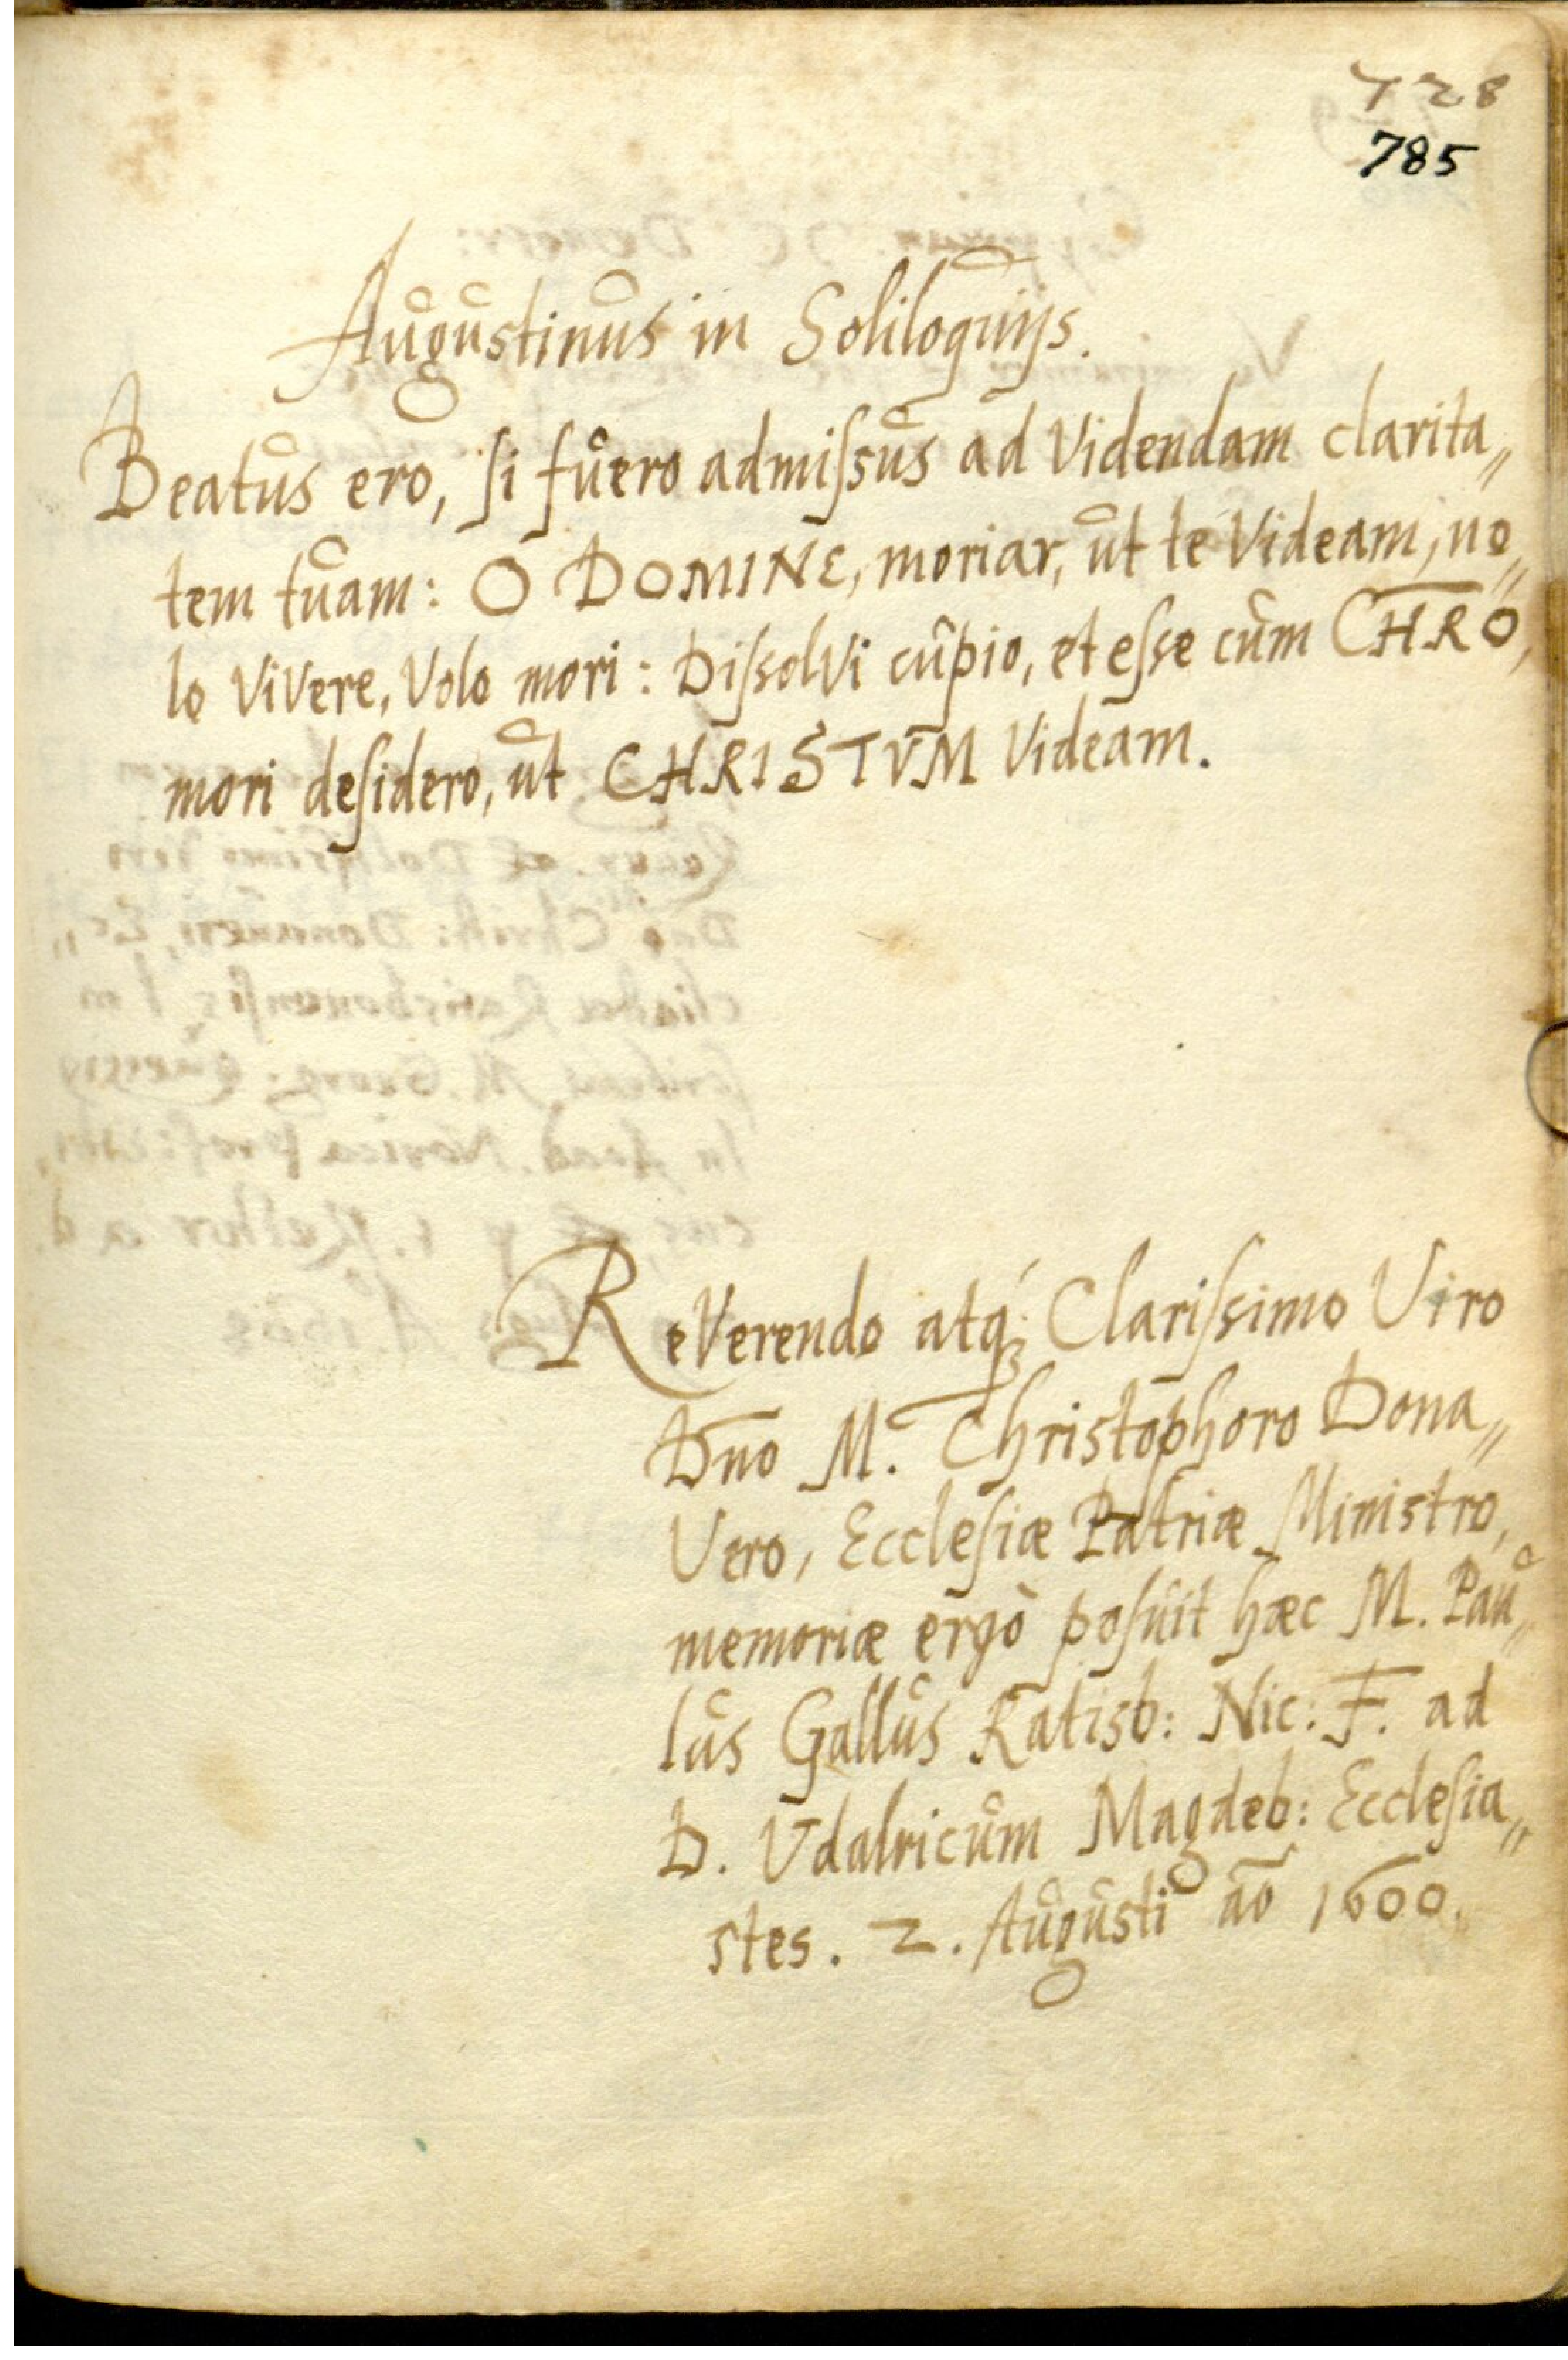 728
785
Augustinus in Soliloquijs.
Beatus ero, si fuero admissus ad Videndam clarita„
tem tuam: O DOMINE, moriar, ut te Videam, no„
lo ViVere, Volo mori: DissolVi cupio, et esse cum CHRO,
mori desidero, ut CHRISTVM Videam.
ReVerendo atq; Clarissimo Viro
Dno M. Christophoro Dona„
Vero, Ecclesiæ Patriæ Ministro,
memoriæ ergò posuit hæc M. Pau„
lus Gallus Ratisb: Nic: F. ad
D. Vdalricum Magdeb: Ecclesia„
stes. 2. Augusti ao 1600.